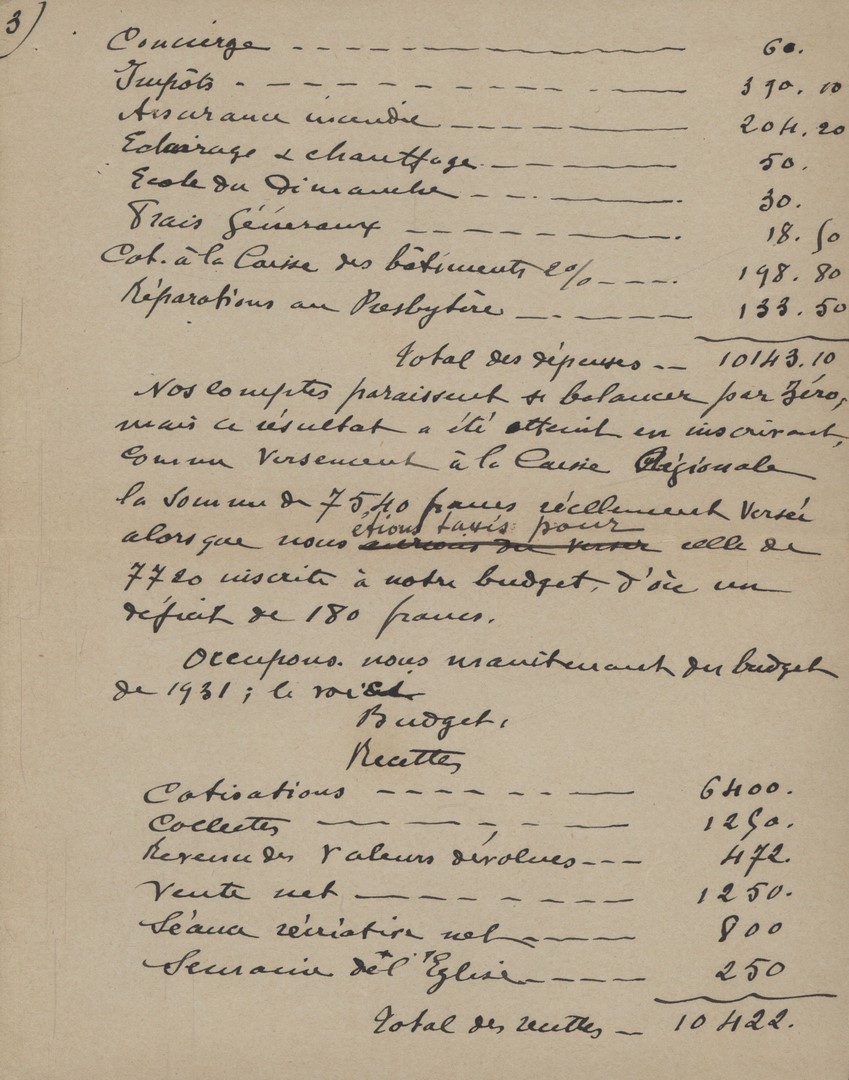 3)
Concierge 60.
Impôts 390.10
Assurance incendie 204.20
Eclairage & chauffage 50.
Ecole du Dimanche 30.
Frais Généraux 18.50
Cot. à la Caisse des bâtiments 2% 198.80
Réparations au Presbytère 133.50
Total des dépenses 10143.10
Nos comptes paraissent se balancer par Zéro,
mais ce résultat a été atteint en inscrivant,
comme Versement à la Caisse Régionale
la somme de 7540 francs réellement versée
étions taxés pour
alors que nous aurions dû verser celle de
7720 inscrite à notre budget, d'où un
déficit de 180 francs.
Occupons-nous maintenant du budget
de 1931 ; le voici
Budget.
Recettes
Cotisations 6400.
Collectes 1250.
Revenu des Valeurs dévolues 472.
Vente net 1250.
Séance récréative net 800
Semaine de l'Eglise 250
Total des recettes 10422.